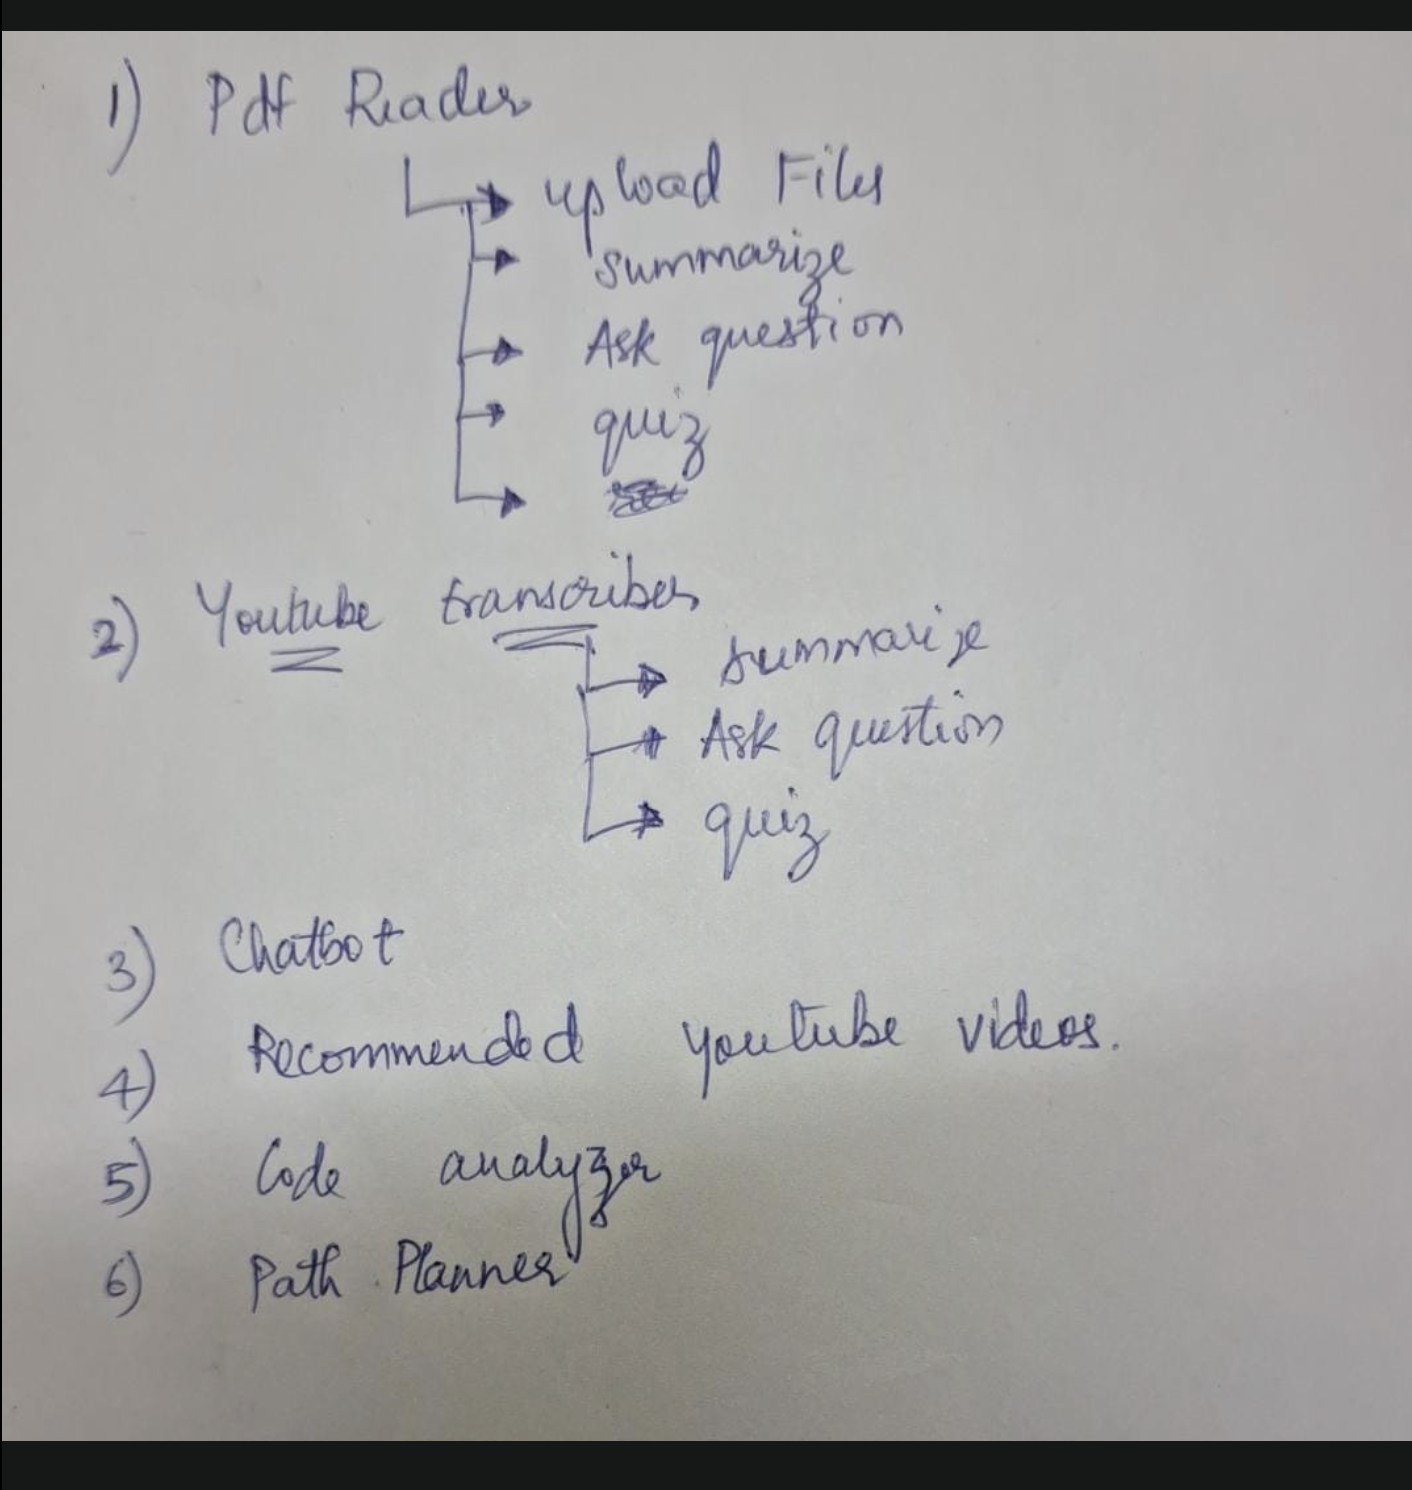 1) Pdf Reader
upload Files
summarize
Ask question
quiz
2) Youtube transcriber
summarize
Ask question
quiz
3) Chatbot
4) Recommended youtube videos.
5) Code analyzer
6) Path Planner